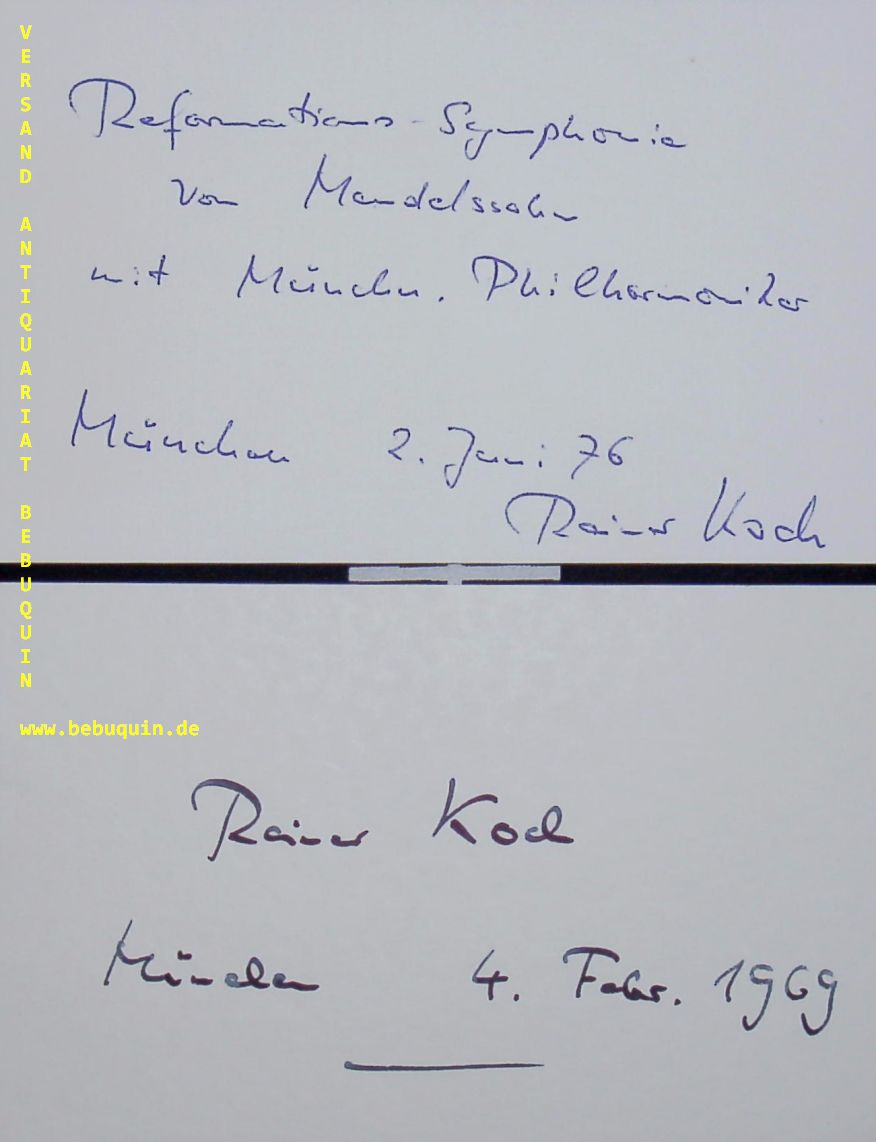 VERSAND ANTIQUARIAT BEBUQUIN
www.bebuquin.de
Reformations-Symphonie
von Mendelssohn
mit Münchn. Philharmoniker
München 2. Juni 76
Rainer Koch
Rainer Koch
München 4. Febr. 1969